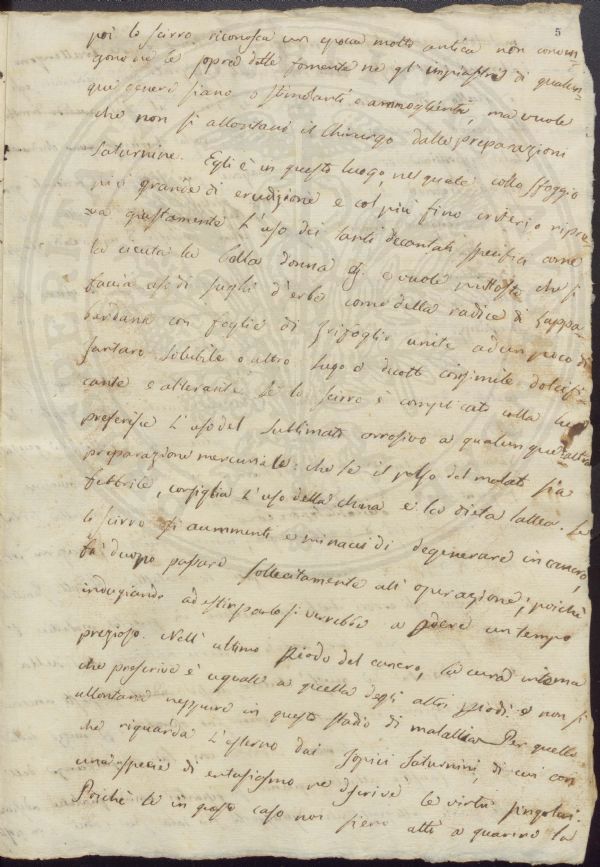 5
poi lo scirro riconosca un epoca molto antica non conven-
gono nè le sopra dette fomenta nè gl'impiastri di qualun-
que genere siano o stimolanti o ammoglienti, ma vuole
che non si allontani il Chirurgo dalle preparazioni
Saturnine. Egli è in questo luogo, nel quale collo sfoggio
più grande di erudizione e col più fino criterio ripro-
va giustamente l'uso dei tanti decantati specifici come
la cicuta la bella donna e vuole piuttosto che si
faccia uso di sughi d'erbe come della radice di Lappa-
bardana con foglie di trifoglio unite ad un poco di
tartaro solubile o altro sugo o decotto consimile dolcifi-
cante e alterante. Se lo scirro è complicato colla lue
preferisce l'uso del sublimato corrosivo a qualunque altra
preparazione mercuriale: che se il polso del malato sia
febbrile, consiglia l'uso della china e la dieta lattea. Se
lo scirro si aummenti e minacci di degenerare in cancro,
fà d'uopo passare sollecitamente all'operazione, poichè
indugiando ad estirparlo si verrebbe a perdere un tempo
prezioso. Nell'ultimo piodo del cancro, la cura interna
che prescrive è uguale a quella degli altri piodi. e non si
allontana neppure in questo stadio di malattia Per quello
che riguarda l'esterno dai Topici Saturnini, di cui con
una specie di entusiasmo ne descrive le virtù singolari.
Poichè se in questo caso non sieno atti a guarire la